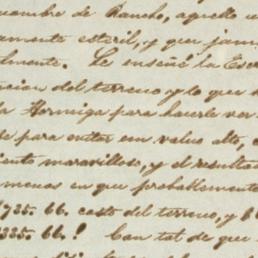 nombre de Rancho, aquello u
amente esteril, y que jam
lmente. Le enseñé la Esc
cion del terreno y lo que
la Hormiga para hacerle ver
te para evitar un valuo alto, c
iento maravilloso, y el resultad
menos en que probablemente
1735.66. costo del terreno, y $
335.66.! Con tal de que